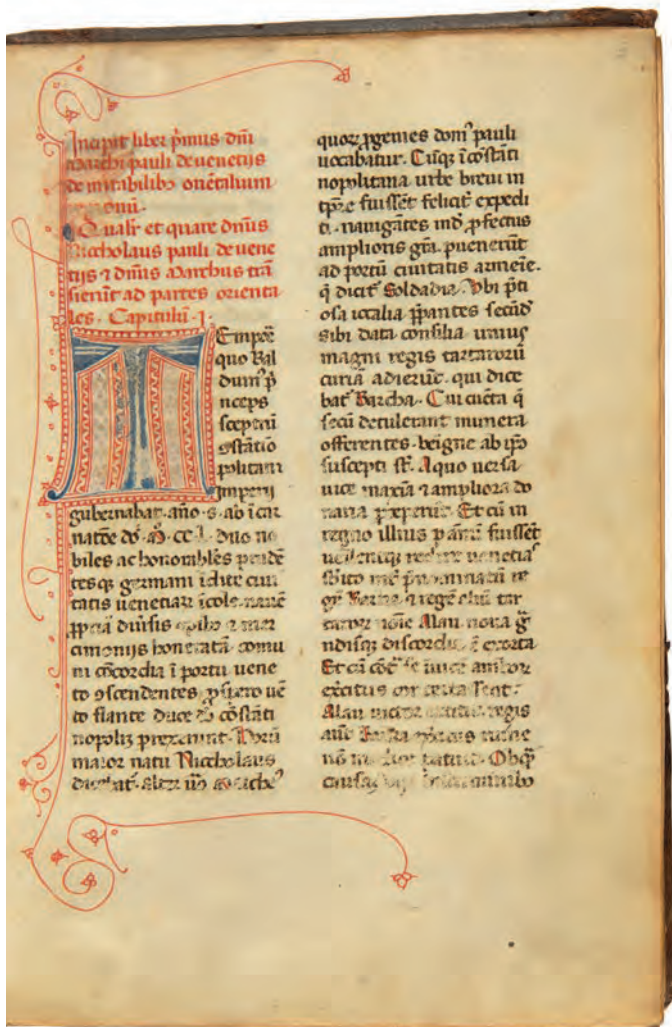 Incipit liber p̃mus dñi
marchi pauli de uenetijs
de mirabilibꝫ oriẽtalium
Qualr̃ et quare dñus
Nicholaus pauli de uene
tijs ⁊ dñus marchus trã
sierũt ad partes orienta
les. Capitulũ .j.
Tempor̃
quo Bal
duinꝰ p̃
nceps
sceptrũ
ꝯstãtĩo
politani
imperij
gubernabat. año. s. ab ĩcar
natõe dñi. M. cc. l. duo no
biles ac honorabiles prudẽ
tesqꝫ germani ĩclite ciui
tatis uenetiaꝝ ĩcole. nauẽ
ꝓpriã diũsis opibꝫ ⁊ mer
cimonijs honeratã comu
ni cõcordia ĩ portu uene
to ꝯscendentes ꝓspero uẽ
to flante duce deo cõstãti
nopolĩ prexerunt. Horũ
maior natu Nicholaus
dicebat̃. alter ũo
quoꝝ ꝓgenies domꝰ pauli
uocabatur. Cũqꝫ ĩ cõstãti
nopolitana urbe breui in
tp̃r̃e fuissẽt felicit̃ expedi
ti. nauigãtes inđ ꝓfectus
amplioris grã. puenerũt
ad portũ ciuitatis armeĩe.
q̃ dicit̃ Soldadia. Vbi p̃ti
osa iocalia p̃pantes secũdʼ
sibi data consilia unius
magni regis tartarorũ
curiã adierũt. qui dice
bat̃ Barcha. Cui cũcta q̃
secũ detulerant munera
offerentes. beigne ab ip̃o
suscepti sť. A quo uersa
uice maxĩa ⁊ ampliora do
naria ꝑceperũt. Et cũ in
regno illius ꝑ annũ fuissẽt
uellentqꝫ redire uenetiaˢ
sbito int̃ p̃nominatũ re
gẽ Barcha ⁊ regẽ aliũ tar
taroꝝ noĩe Alau noua g̃
ndisqꝫ discordia ẽ exorta
Et cũ se inuicẽ amboꝝ
exc̃itus
Alau uictor regis
aũt Barcha
nõ Ob qͣ
causaꝫ